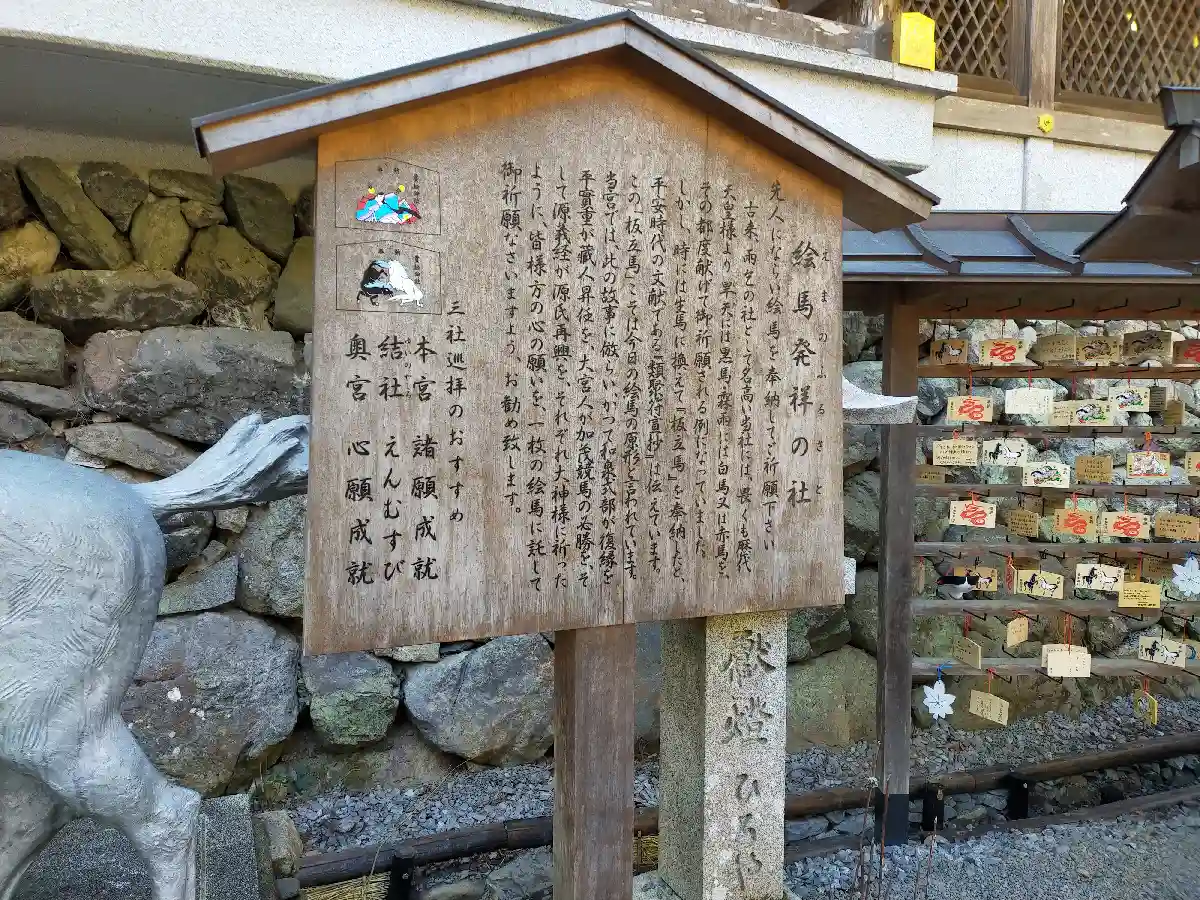 絵馬発祥の社
えまのふるさと
先人にならい絵馬を奉納してご祈願下さい
古来、雨乞の社として名高い当社には、畏くも歴代
天皇様より旱天には黒馬、霖雨には白馬又は赤馬を、
その都度献げて御祈願される例になっていました。
しかし、時には生馬に換えて『板立馬』を奉納したと、
平安時代の文献である『類聚符宣抄』は伝えています。
この『板立馬』こそは今日の絵馬の原形と言われています。
当宮では、此の故事に倣らいかつて和泉式部が復縁を
平實重が蔵人昇任を、大宮人が加茂競馬の必勝を、そ
して源義経が源氏再興を、それぞれ大神様に祈った
ように、皆様方の心の願いを、一枚の絵馬に託して
御祈願なさいますよう、お勧め致します。
三社巡拝のおすすめ
本宮 諸願成就
結社 えんむすび
奥宮 心願成就
献燈 ひろや